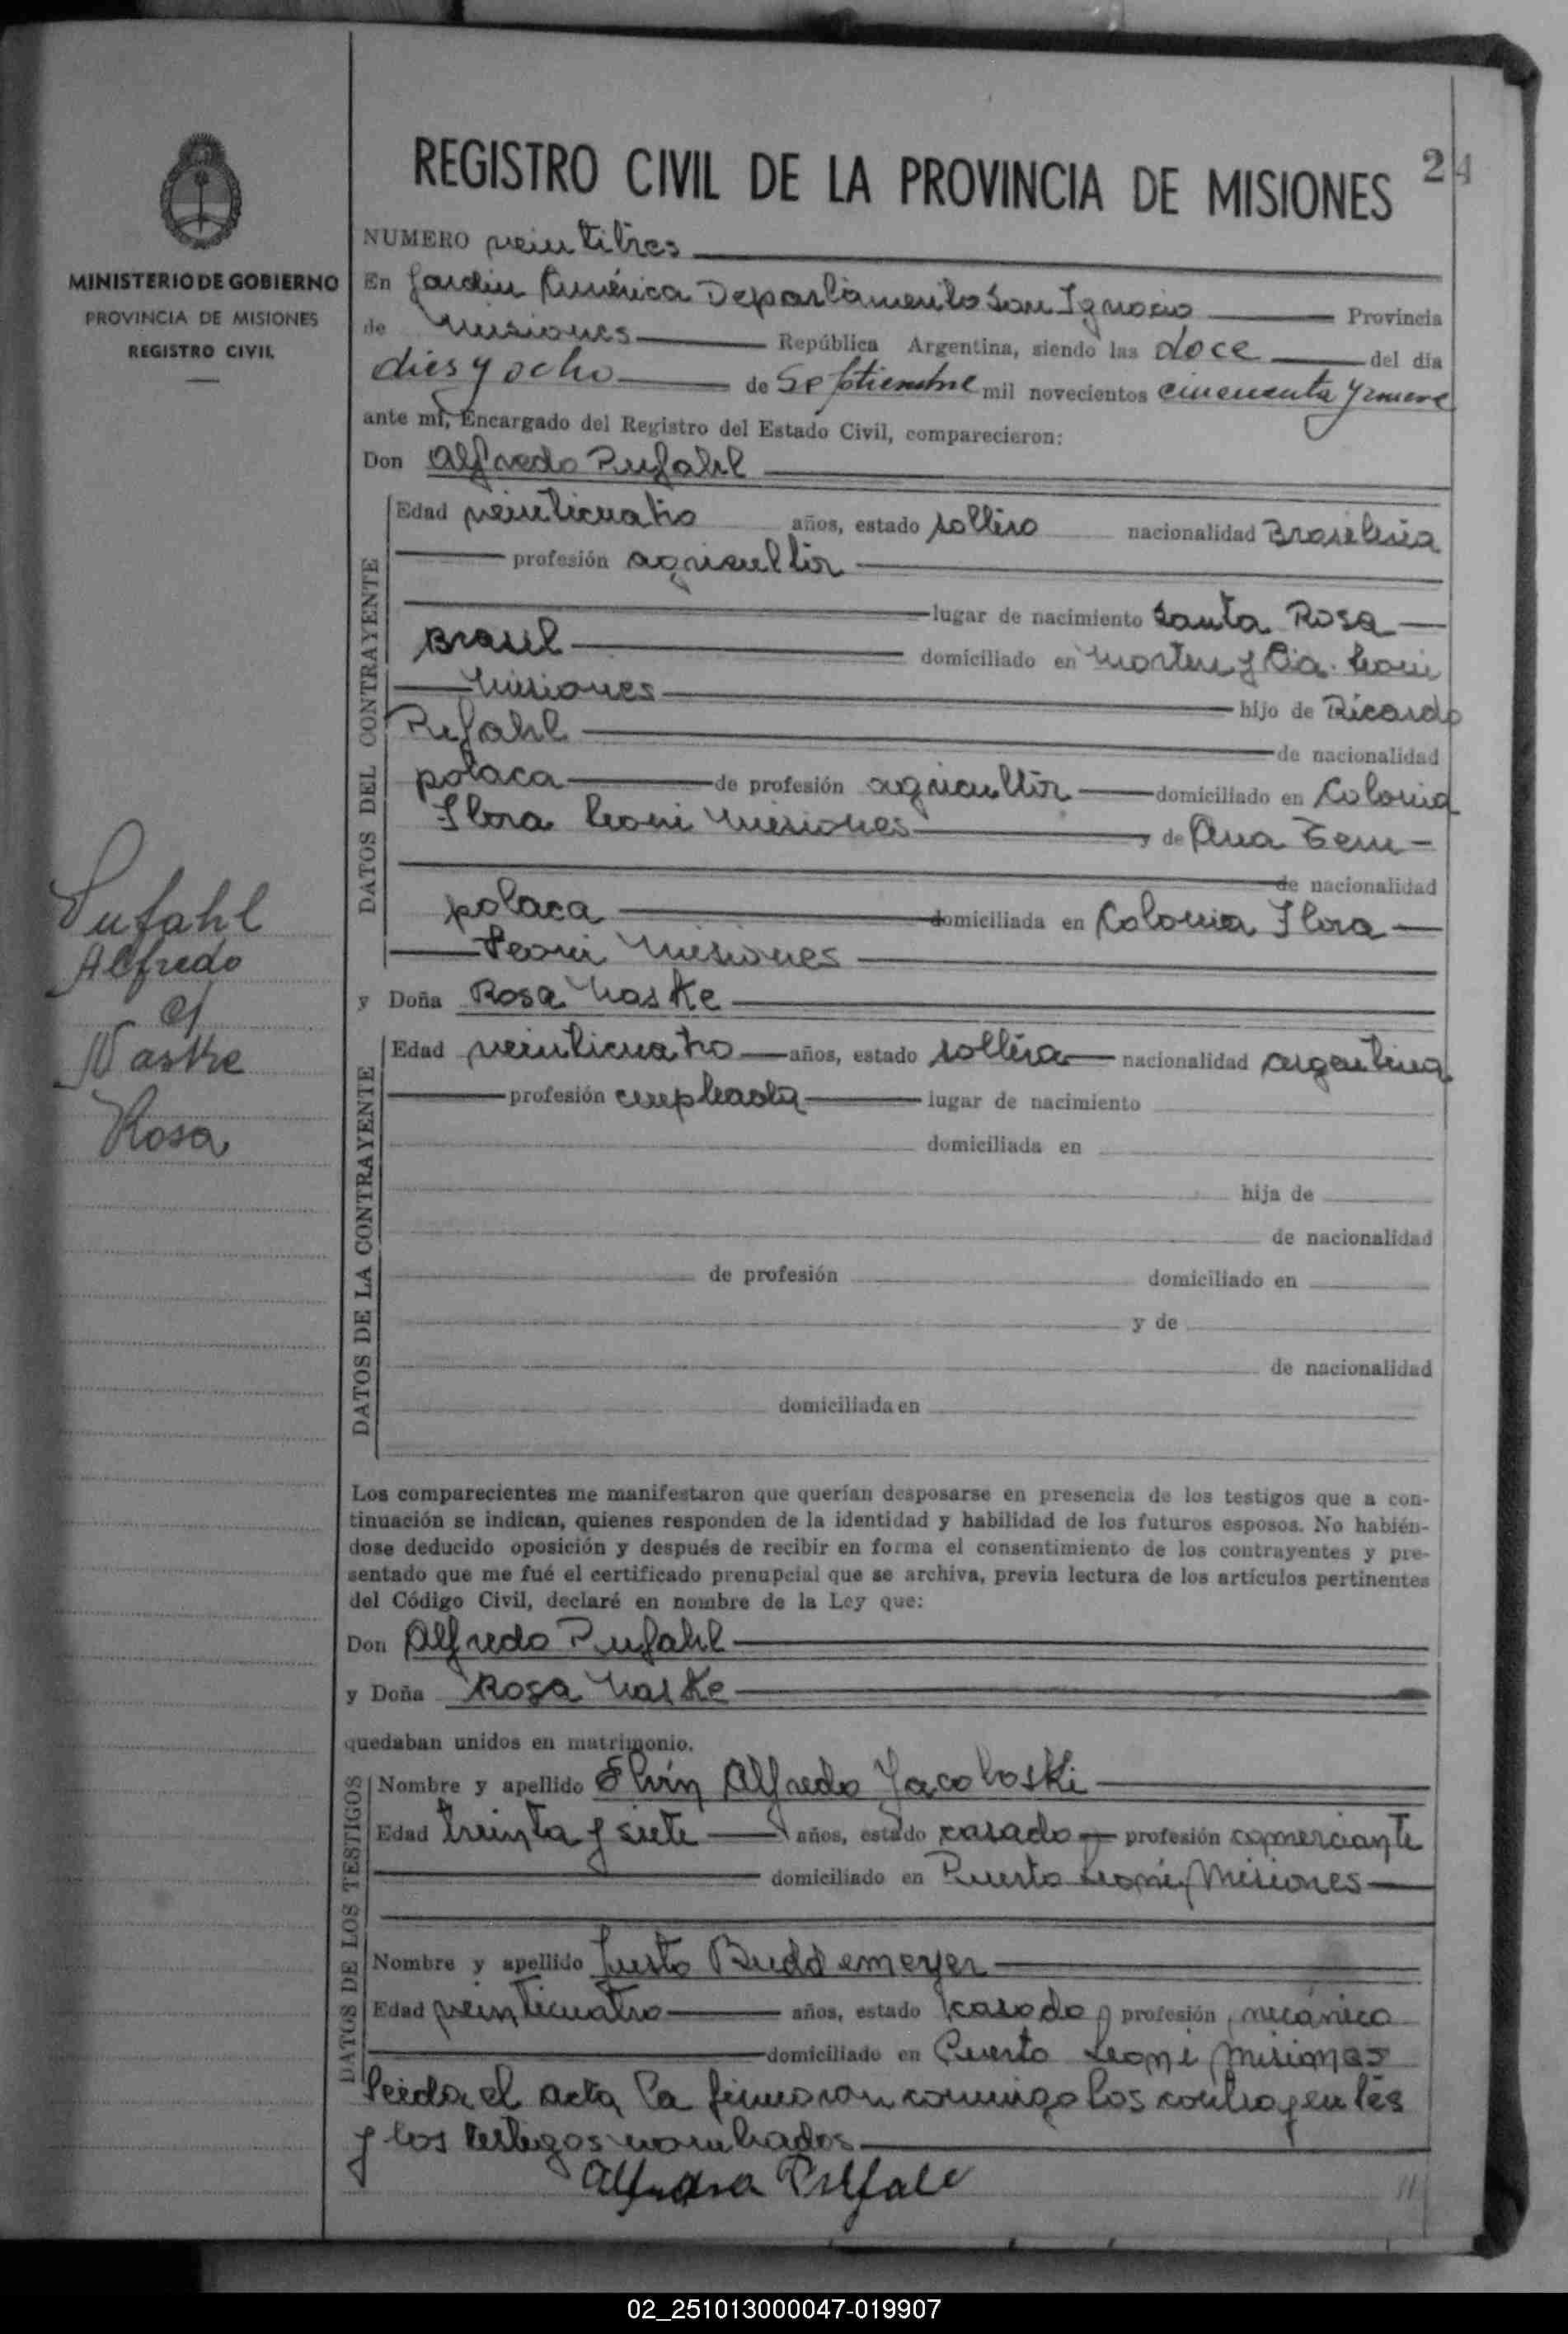 REGISTRO CIVIL DE LA PROVINCIA DE MISIONES 24
MINISTERIO DE GOBIERNO
PROVINCIA DE MISIONES
REGISTRO CIVIL
NUMERO veintitres
En Jardin América Departamento San Ignacio Provincia
de Misiones República Argentina, siendo las doce del día
dies y ocho de Septiembre mil novecientos cincuenta y nueve
ante mí, Encargado del Registro del Estado Civil, comparecieron:
Don Alfredo Pufahl
DATOS DEL CONTRAYENTE
Edad veinticuatro años, estado soltero nacionalidad Brasileña
profesión agricultor
lugar de nacimiento Santa Rosa
Brasil domiciliado en y Cia. Leoni
Misiones hijo de Ricardo
Pufahl de nacionalidad
polaca de profesión agricultor domiciliado en Colonia
Flora Leoni Misiones y de Ana
de nacionalidad
polaca domiciliada en Colonia Flora
Leoni Misiones
Pufahl
Alfredo
c/
Naske
Rosa
y Doña Rosa Naske
DATOS DE LA CONTRAYENTE
Edad veinticuatro años, estado soltera nacionalidad argentina
profesión empleada lugar de nacimiento
domiciliada en
hija de
de nacionalidad
de profesión domiciliado en
y de
de nacionalidad
domiciliada en
Los comparecientes me manifestaron que querían desposarse en presencia de los testigos que a con-
tinuación se indican, quienes responden de la identidad y habilidad de los futuros esposos. No habién-
dose deducido oposición y después de recibir en forma el consentimiento de los contrayentes y pre-
sentado que me fué el certificado prenupcial que se archiva, previa lectura de los artículos pertinentes
del Código Civil, declaré en nombre de la Ley que:
Don Alfredo Pufahl
y Doña Rosa Naske
quedaban unidos en matrimonio.
DATOS DE LOS TESTIGOS
Nombre y apellido Elvin Alfredo Jacoboski
Edad treinta y siete años, estado casado profesión comerciante
domiciliado en Puerto Leoni, Misiones
Nombre y apellido Justo Buddemeyer
Edad veinticuatro años, estado casado profesión mecánico
domiciliado en Puerto Leoni, Misiones
Leida el acta, la firmaron conmigo los contrayentes
y los testigos nombrados
02_251013000047-019907